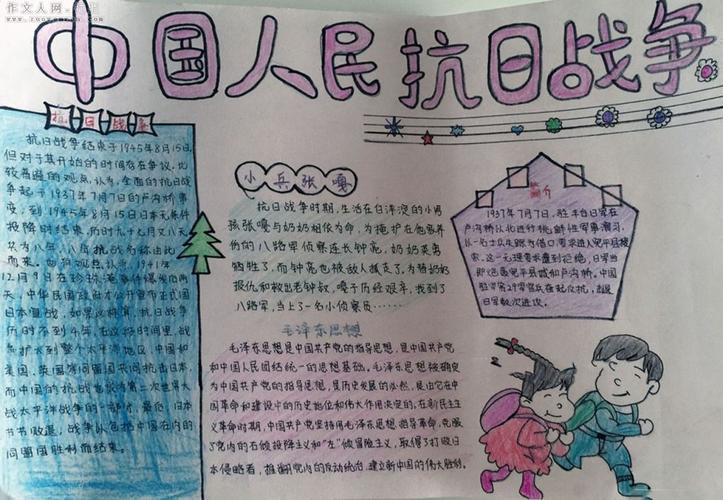 作文人网
中国人民抗日战争
抗日战争
抗日战争结束于1945年8月15日,
但对于其开始的时间存在争议,比
较普遍的观点认为,全面的抗日战
争起于1937年7月7日的卢沟桥事
变,到1945年8月15日日本无条件
投降时结束,历时九十七月又八天
认为八年,八年抗战名称由此
而来。也有观点认为,1941年
12月9日在珍珠港事件爆发后两
天,中华民国政府才公开宣布正式国
日本宣战,如果这样算,抗日战争
历时不到4年。在这段时间里,战
兵扩大到整个太平洋地区,中国和
美国,英国等同盟国共同抗击日本,
而中国的抗战也成为第二次世界大
战太平洋战争的一部分,最后,日本
节节败退,战争以包括中国在内的
同盟国胜利而结束。
小兵张嘎
抗日战争时期,生活在白洋淀的小男
孩张嘎与奶奶相依为命,为掩护在他家养
伤的八路军侦察连长钟亮,奶奶英勇
牺牲了,而钟亮也被敌人抓走了,为替奶奶
报仇和救出老钟叔,嘎子历经艰辛,找到了
八路军,当上了一名小侦察员……
毛泽东思想
毛泽东思想是中国共产党的指导思想,是中国共产党
和中国人民团结统一的思想基础,毛泽东思想被确定
为中国共产党的指导思想,是历史发展的必然,是由它在中
国革命和建设中的历史地位和伟大作用决定的,在新民主主
义革命时期,中国共产党坚持用毛泽东思想指导革命,克服
了党内的右倾投降主义和"左"倾冒险主义,取得了打败日
本侵略者,推翻国内的反动统治,建立新中国的伟大胜利。
简介
1937年7月7日,驻丰台日军在
卢沟桥以北进行挑衅性军事演习,
以一名士兵失踪为借口要求进入宛平县搜
索,这一无理要求遭到拒绝,日军当
即炮轰宛平县城和卢沟桥。中国
驻守第29军官兵奋起抗击,击退
日军数次进攻。